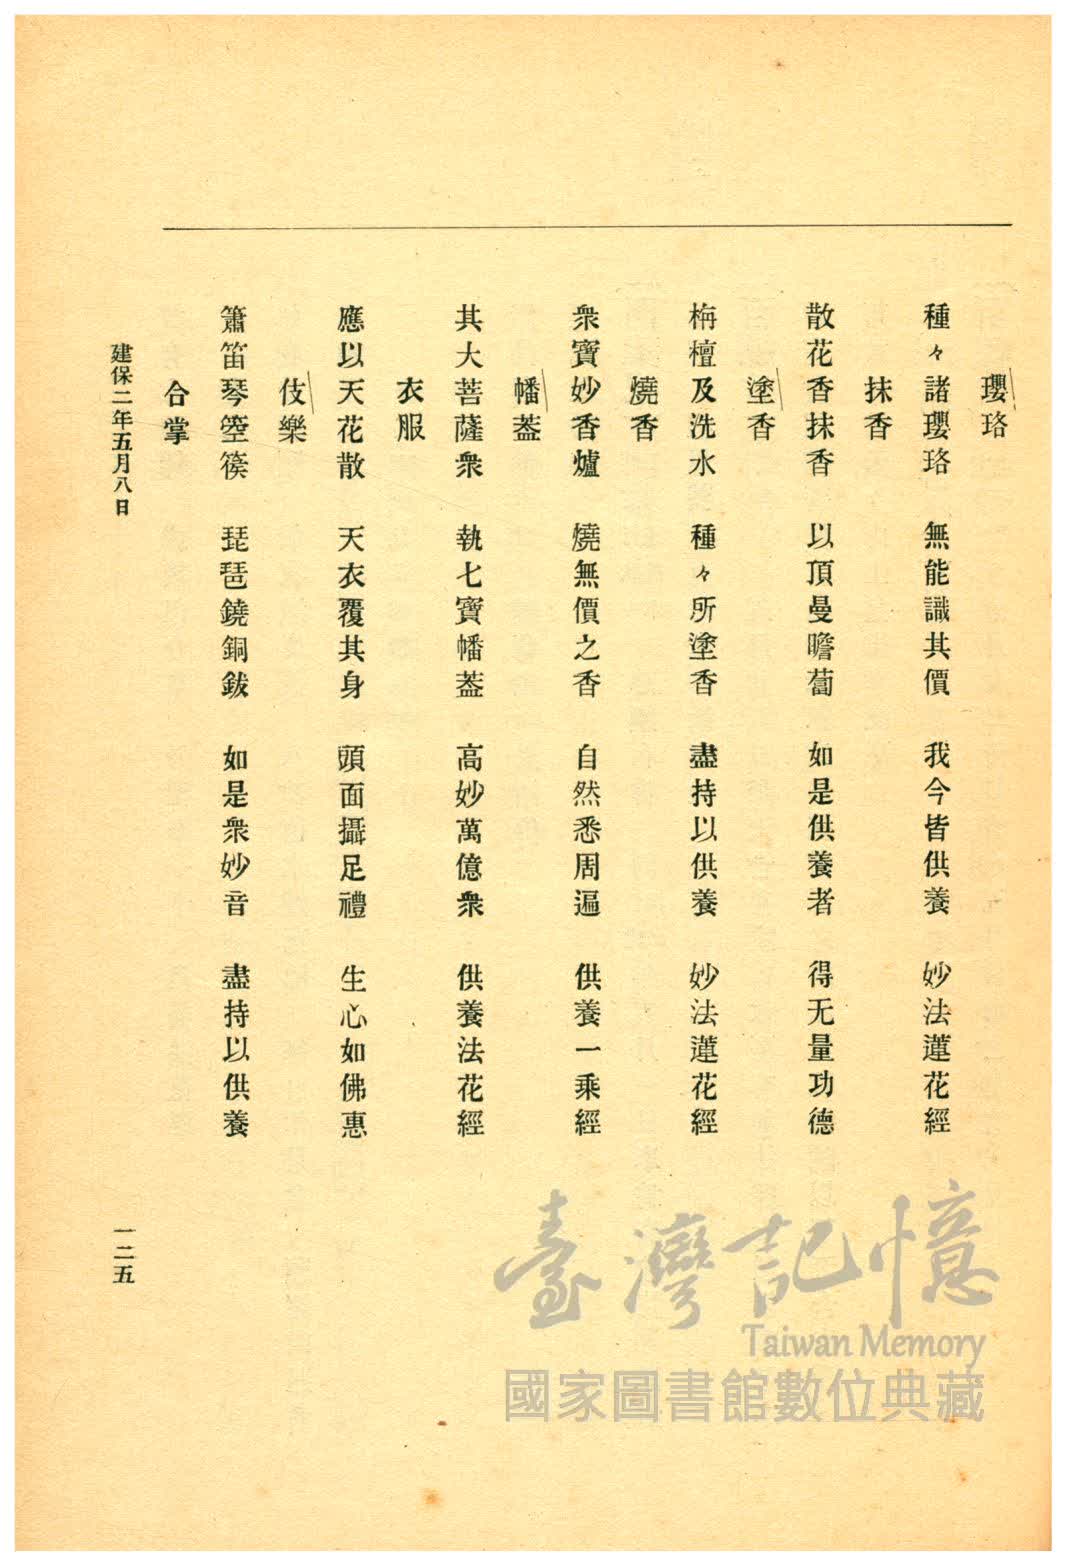 瓔珞
種々諸瓔珞　無能識其價　我今皆供養　妙法蓮花經
抹香
散花香抹香　以頂曼瞻蔔　如是供養者　得无量功德
塗香
栴檀及洗水　種々所塗香　盡持以供養　妙法蓮花經
燒香
衆寶妙香爐　燒無價之香　自然悉周遍　供養一乘經
幡葢
其大菩薩衆　執七寶幡葢　高妙萬億衆　供養法花經
衣服
應以天花散　天衣覆其身　頭面攝足禮　生心如佛惠
伎樂
簫笛琴箜篌　琵琶鐃銅鈸　如是衆妙音　盡持以供養
合掌
建保二年五月八日
一二五
臺灣記憶
Taiwan Memory
國家圖書館數位典藏